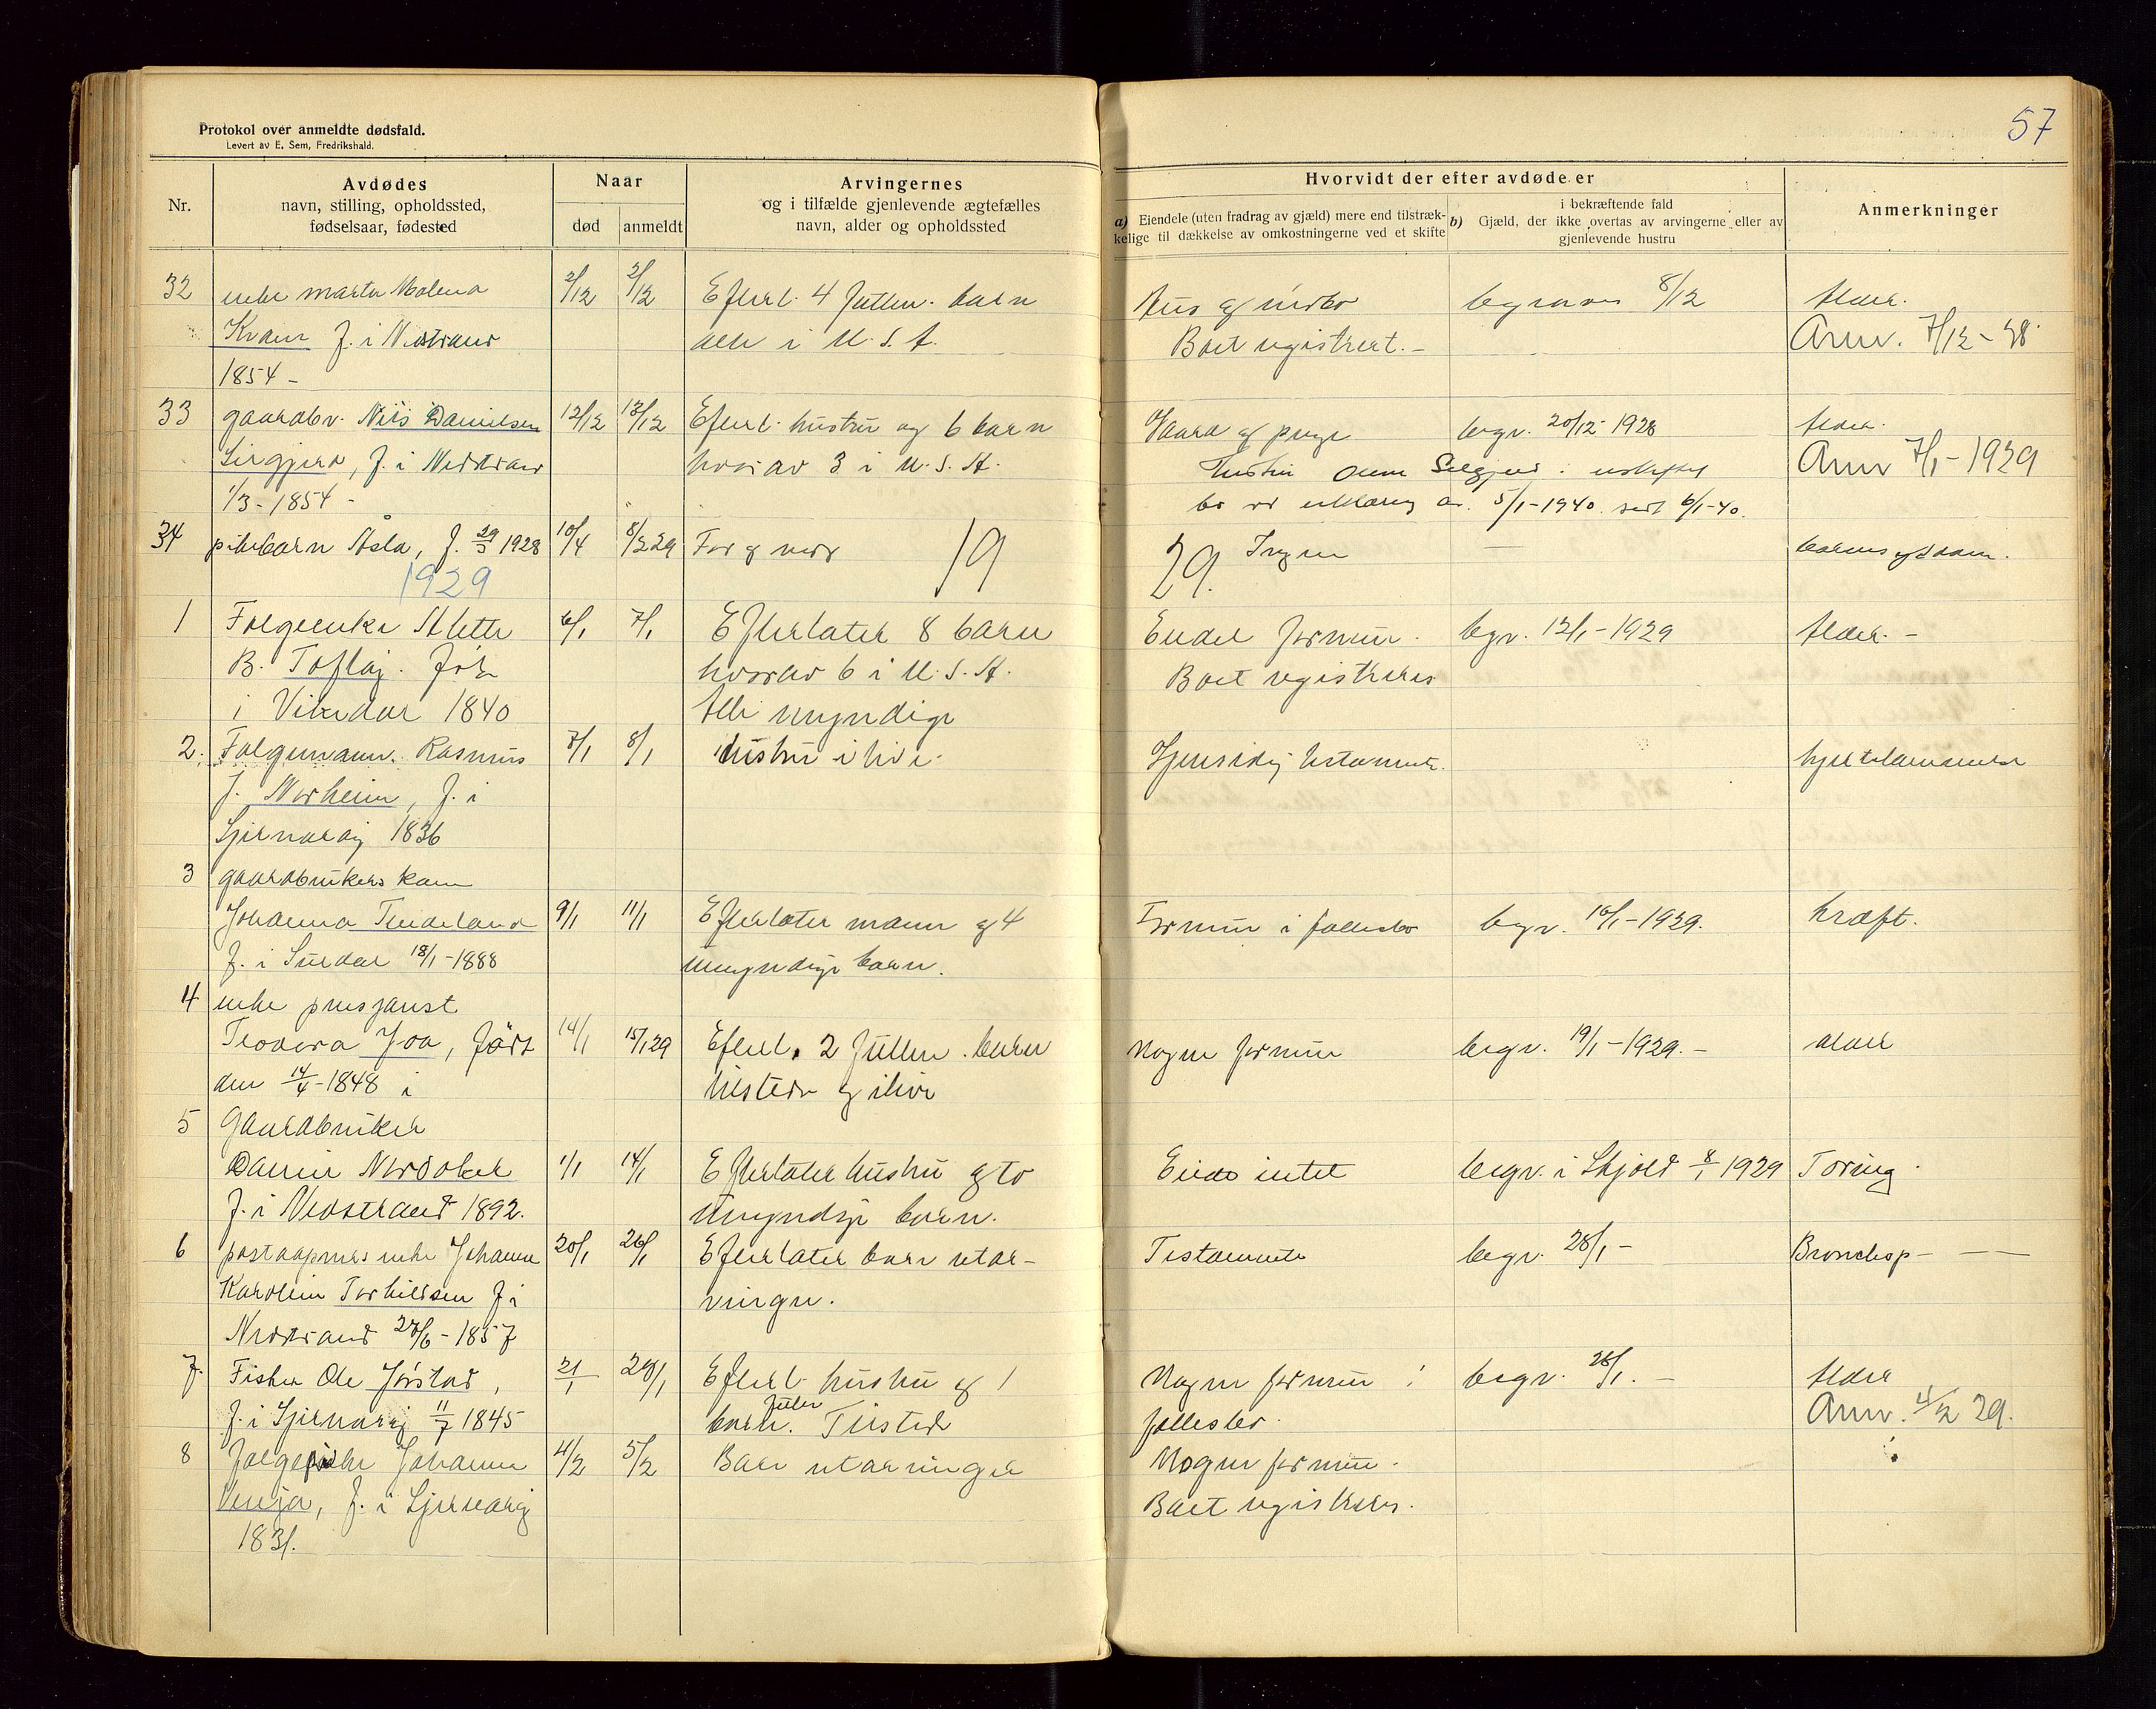 57
Protokol over anmeldte dødsfald.
Levert av E. Sem, Fredrikshald.
Nr.
Avdødes
navn, stilling, opholdssted,
fødselsaar, fødested
Naar
død
anmeldt
Arvingernes
og i tilfælde gjenlevende ægtefælles
navn, alder og opholdssted
Hvorvidt der efter avdøde er
a) Eiendele (uten fradrag av gjæld) mere end tilstræk-
kelige til dækkelse av omkostningerne ved et skifte
i bekræftende fald
b) Gjæld, der ikke overtas av arvingerne eller av
gjenlevende hustru
Anmerkninger
32 enke Marta Malena 2/12 2/12 Efterl. 4 fuller. barn Hus og indbo begraves 8/12 Alder.
Kvam f. i Nedstrand alle i U.S.A. Boet registrert. - Anm. 7/12-28
1854 -
33 gaardbr. Nils Danielsen 12/12 13/12 Efterl. hustru og 6 barn Gaard og penge begr. 20/12 1928 Alder.
f. i Nedstrand hvorav 3 i U.S.A. Hustru i uskiftet Anm 7/1-1929
1/3-1854 - bo 5/1-1940 6/1-40.
34 pikebarn Åsta, f. 29/3 1928 10/4 8/2 29 For og mor Ingen — barnesygdom.
1929 19 29.
1 Folgeenke Alette 6/1 7/1 Efterlater 8 barn Endel formue. begr. 12/1-1929 Alder. -
B. Toflaj. født hvorav 6 i U.S.A. Boet registreres
i Vikedal 1840 Alle myndige
2. Folgemann. Rasmus 7/1 8/1 hustru i live. Gjensidig testamente. hjertelammelse
J. Norheim, f. i
Sjernarøy 1836
3 gaardbrukers kone
Johanna Tendeland 9/1 11/1 Efterlater mann og 4 Formue i fællesbo begr. 16/1-1929. kræft.
f. i Suldal 18/1-1888 umyndige barn.
4 enke
Teodora Joa, født 14/1 15/1 29 Efterl. 2 fuller. barn Nogen formue begr. 19/1-1929. - alder
den 14/4-1848 i tilstede og ilive
5 Gaardbruker
Daniel 1/1 14/1 Efterlater hustru og to Eiede intet begr. i Skjold 8/1 1929 Tæring.
f. i Nedstrand 1892. umyndige barn.
6 postaapners enke Johanne 20/1 26/1 Efterlater bare utar- Testamente begr. 28/1 - Bronchop — —
Karoline Torkildsen f i vinger.
Nedstrand 27/6-1857
7. Fisker Ole Jørstad, 21/1 28/1 Efterl. hustru og 1 Nogen formue i begr. 28/1. - Alder
f. i Sjernarøy 11/7 1845 fuller barn. Tilstede fællesbo. Anm. 4/2 29.
8 Johanne 4/2 5/2 Bare utarvinger Nogen formue.
Venja, f. i Sjernarøy Boet registreres.
1831.